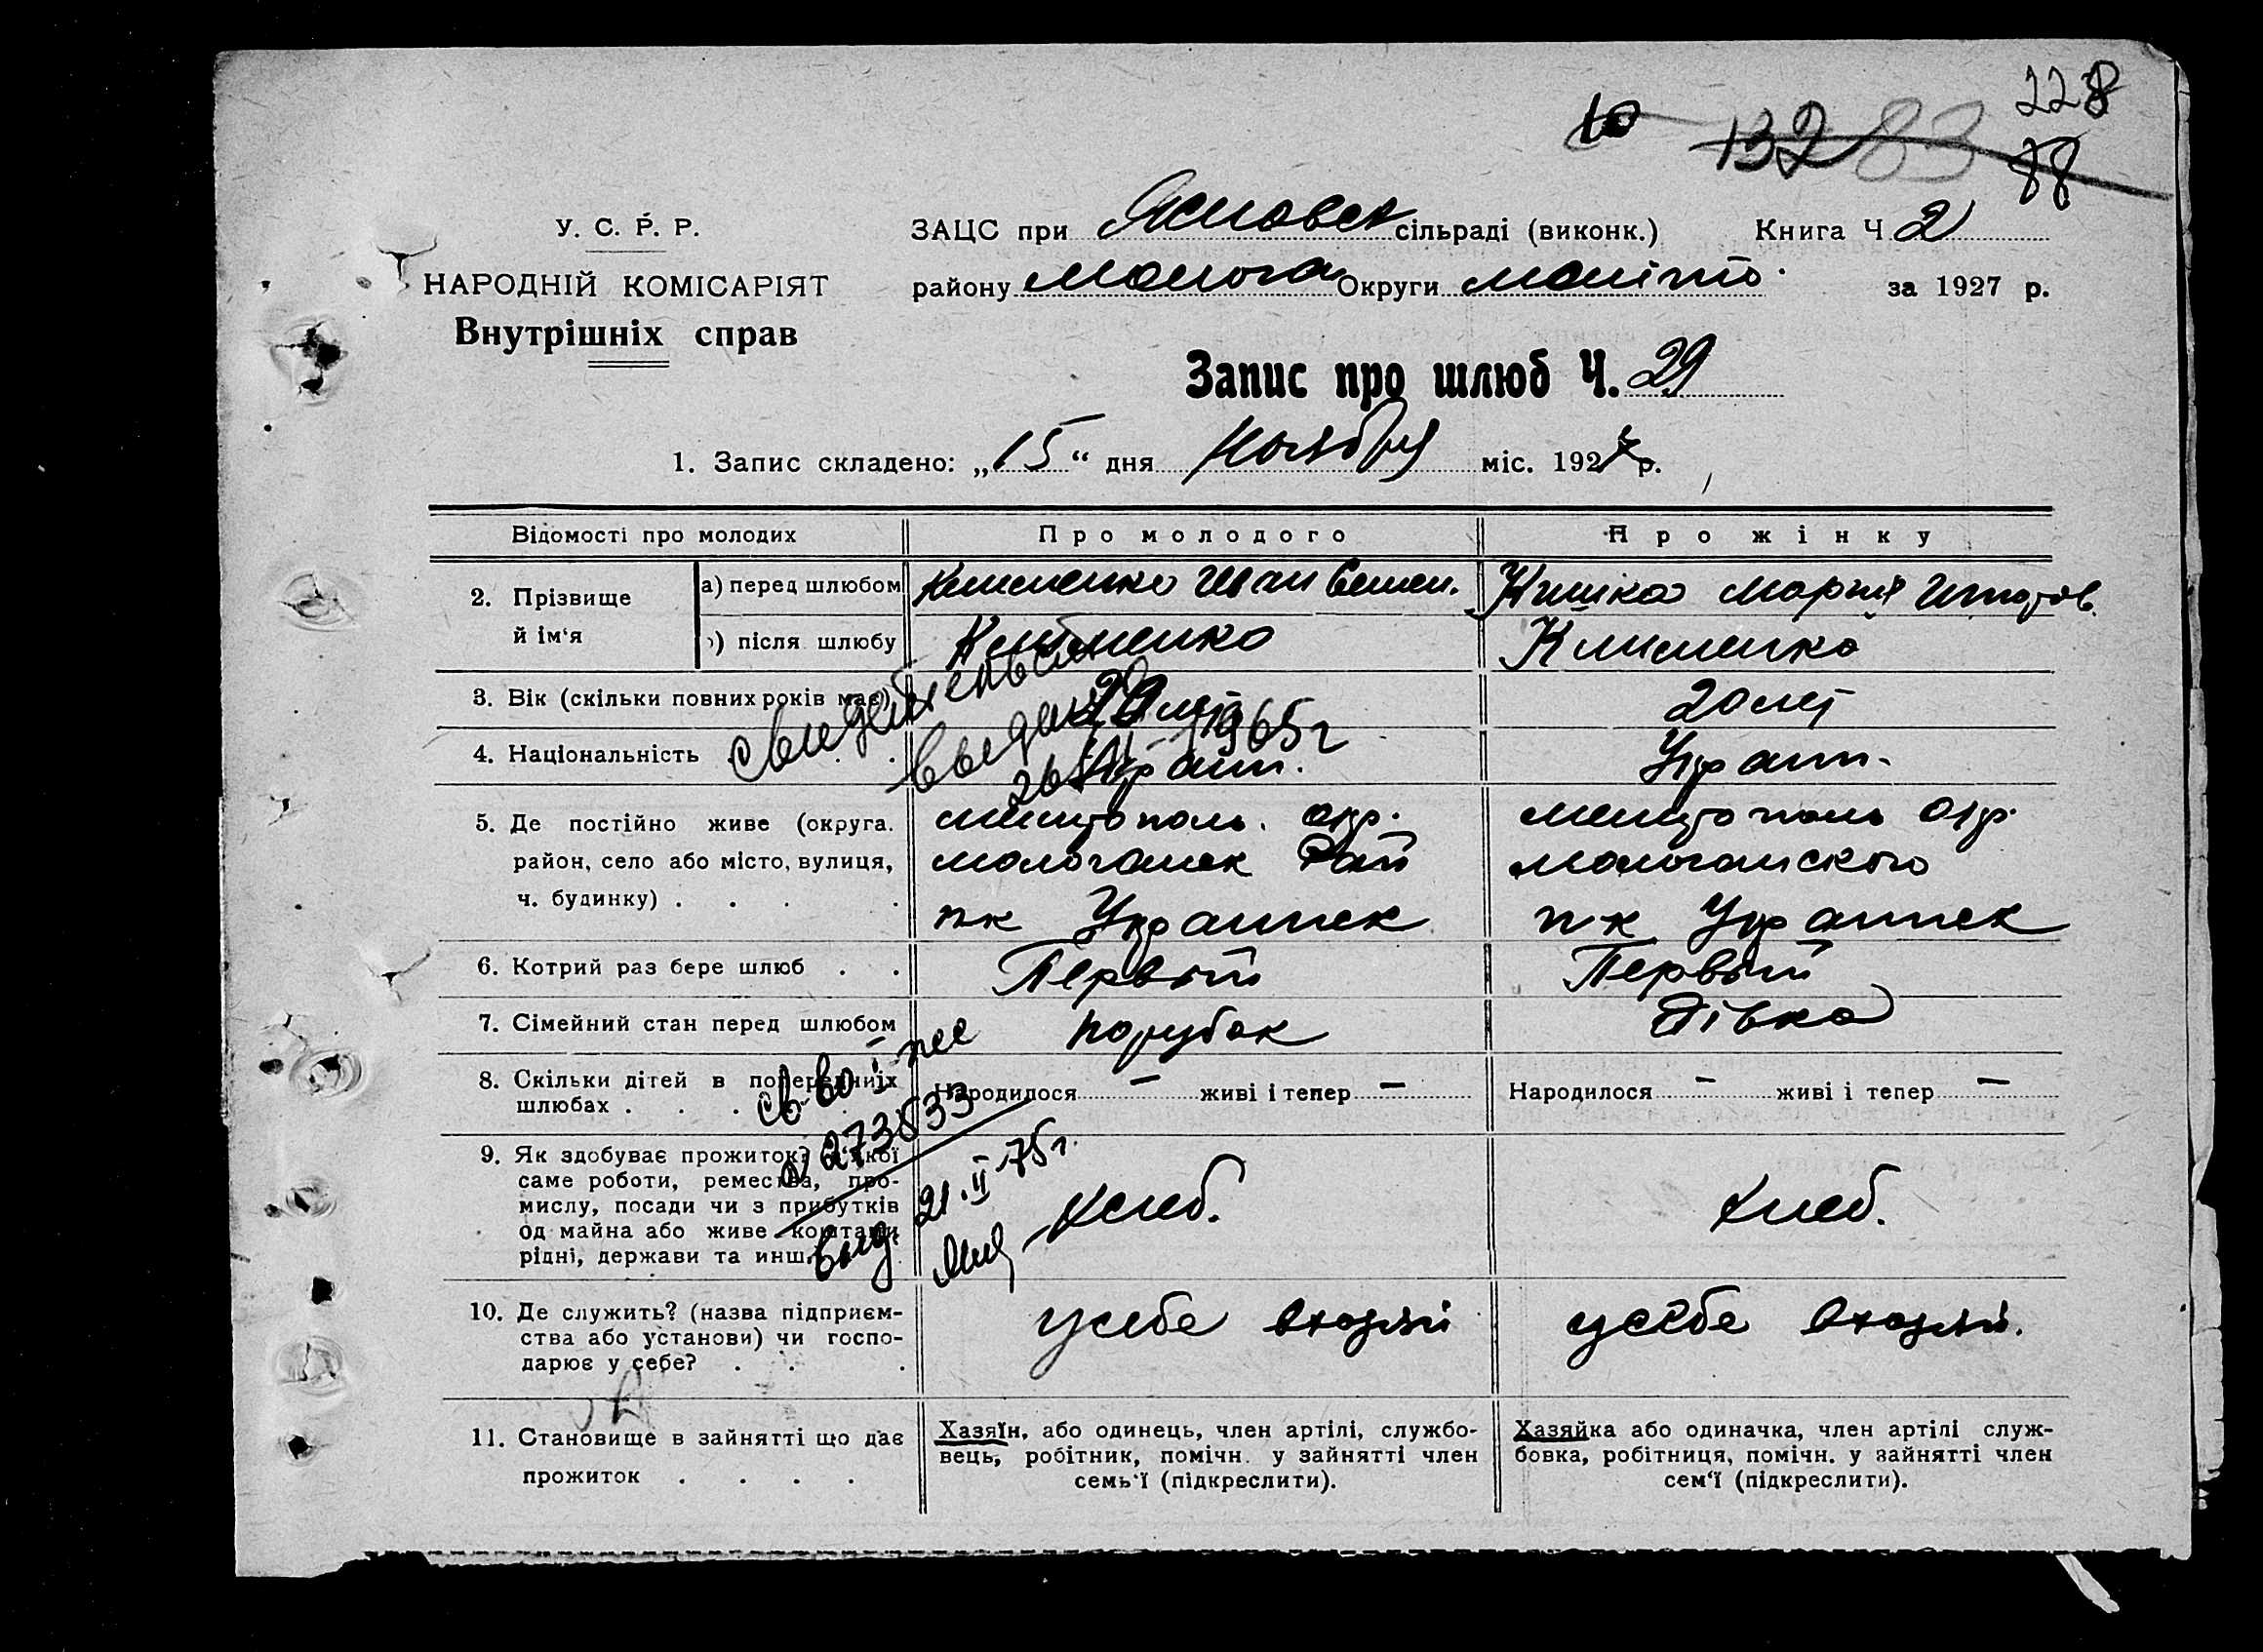 228
132 83 88
У. С. Р. Р.
НАРОДНІЙ КОМІСАРІЯТ
Внутрішніх справ
ЗАЦС при сільраді (виконк.) Книга Ч 2
району Молоча Округи Меліто. за 1927 р.
Запис про шлюб Ч. 29
1. Запис складено: „15“ дня Ноября міс. 1927 р.
Відомості про молодих
Про молодого
Про жінку
2. Прізвище й ім‘я
а) перед шлюбом
Клименко Иван Семен.
Кишка Мария
б) після шлюбу
Клименко
Клименко
3. Вік (скільки повних років має)
29 лет
20 лет
4. Національність . .
Украин.
Украин.
5. Де постійно живе (округа.
район, село або місто, вулиця,
ч. будинку) . . . .
Мелитополь. окр.
Молочанск Рай
пк Украинск
Мелитополь окр.
Молочанского
пк Украинск
6. Котрий раз бере шлюб . .
Первый
Первый
7. Сімейний стан перед шлюбом
Парубок
Дівка
8. Скільки дітей в попередніх
шлюбах . . .
Народилося — живі і тепер —
Народилося — живі і тепер —
9. Як здобуває прожиток? З якої
саме роботи, ремества, про-
мислу, посади чи з прибутків
од майна або живе коштами
рідні, держави та инш.
хлеб.
хлеб.
10. Де служить? (назва підприєм-
ства або установи) чи госпо-
дарює у себе? . . .
у себе
у себе
11. Становище в зайнятті що дає
прожиток . . . .
Хазяїн, або одинець, член артілі, службо-
вець, робітник, помічн. у зайнятті член
семь‘ї (підкреслити).
Хазяйка або одиначка, член артілі служ-
бовка, робітниця, помічн. у зайнятті член
сем‘ї (підкреслити).
свидетельство
выдано
1965 г
св-во
273533
выд. 21.II-75 г.